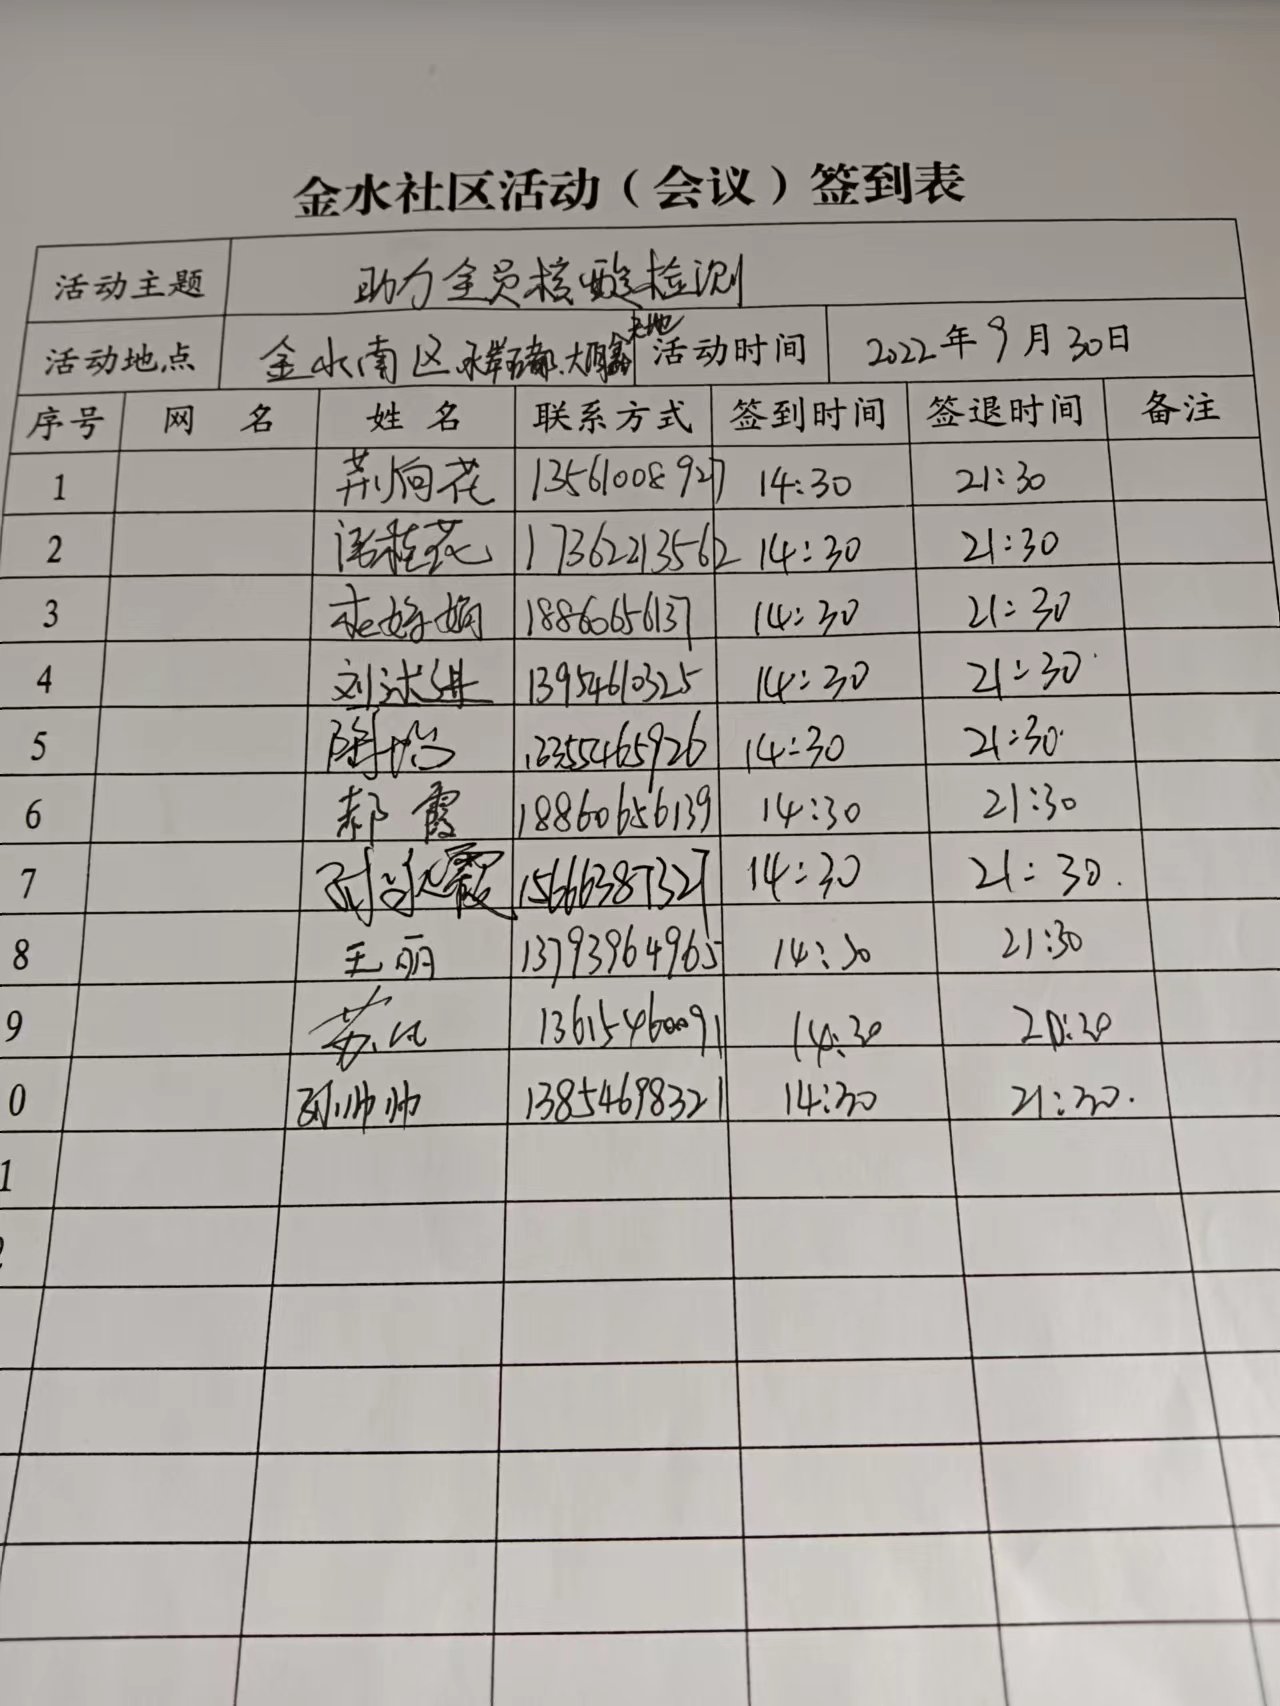 金水社区活动（会议）签到表
活动主题 助力全员核酸检测
活动地点 金水南区. 活动时间 2022年9月30日
序号 网 名 姓 名 联系方式 签到时间 签退时间 备注
1 荆向花 13561008927 14:30 21:30
2 17362213562 14:30 21:30
3 18860656137 14:30 21:30
4 13954610325 14:30 21:30
5 14:30 21:30
6 郝霞 18860656139 14:30 21:30
7 15666387327 14:30 21:30
8 王丽 13793964965 14:30 21:30
9 13615460091 14:30
0 孙帅帅 13854698321 14:30 21:30.
1
2